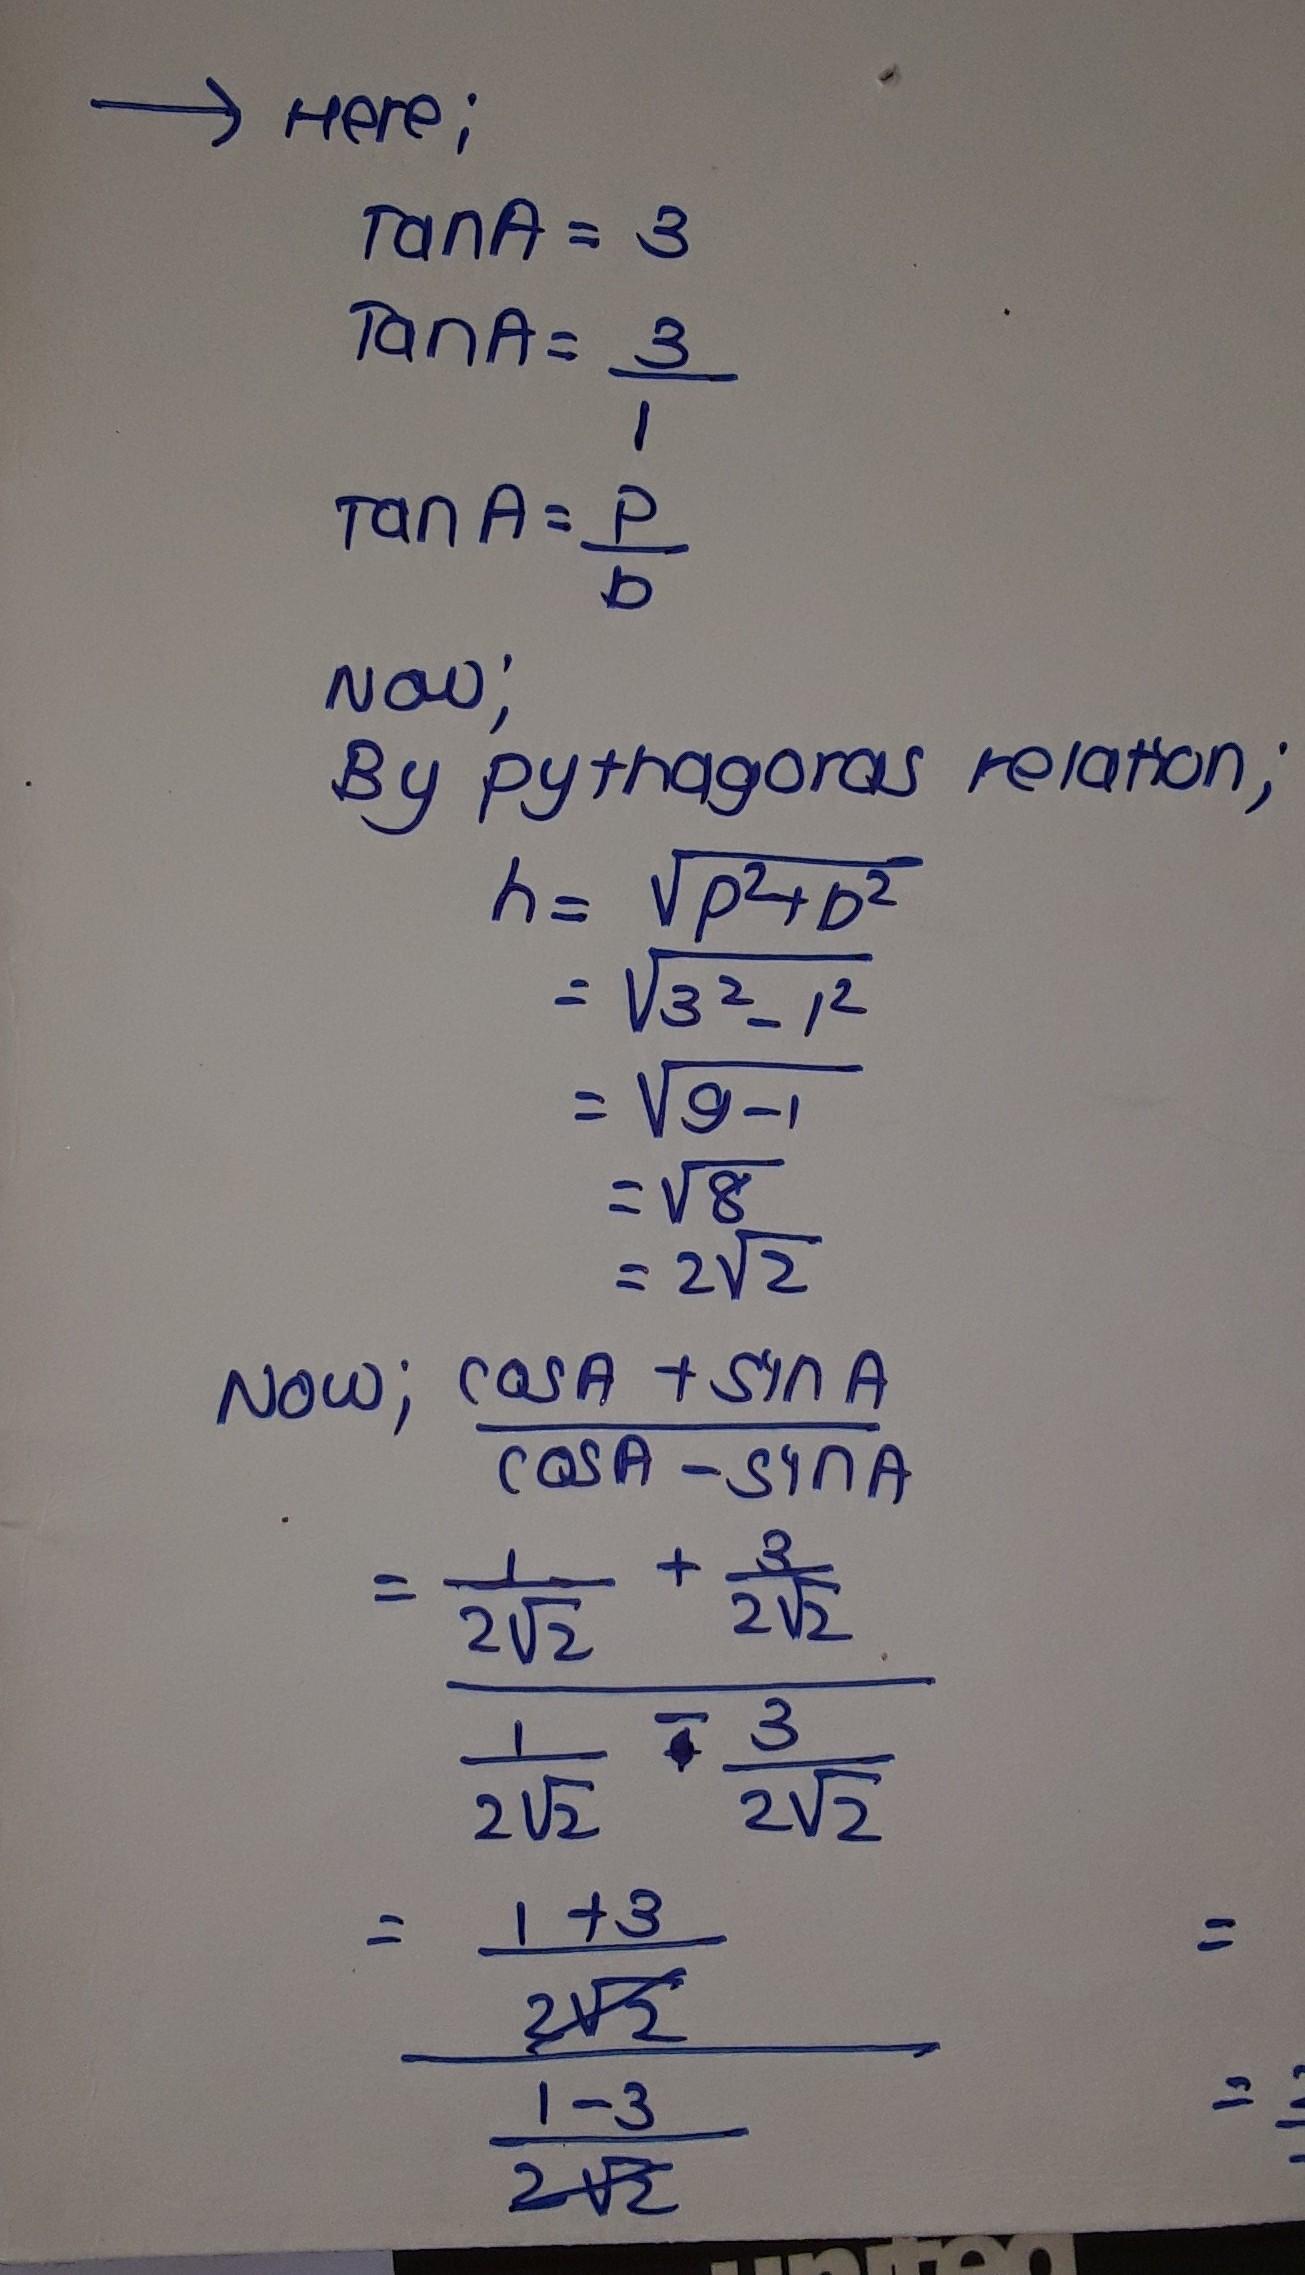 → Here;
TanA = 3
TanA = 3/1
Tan A = P/b
Now;
By pythagoras relation;
h = √(p²+b²)
= √(3²-1²)
= √(9-1)
= √8
= 2√2
Now; cosA + sin A
cosA - sin A
= 1/2√2 + 3/2√2
1/2√2 - 3/2√2
= 1+3 =
2√2
1-3 =
2√2